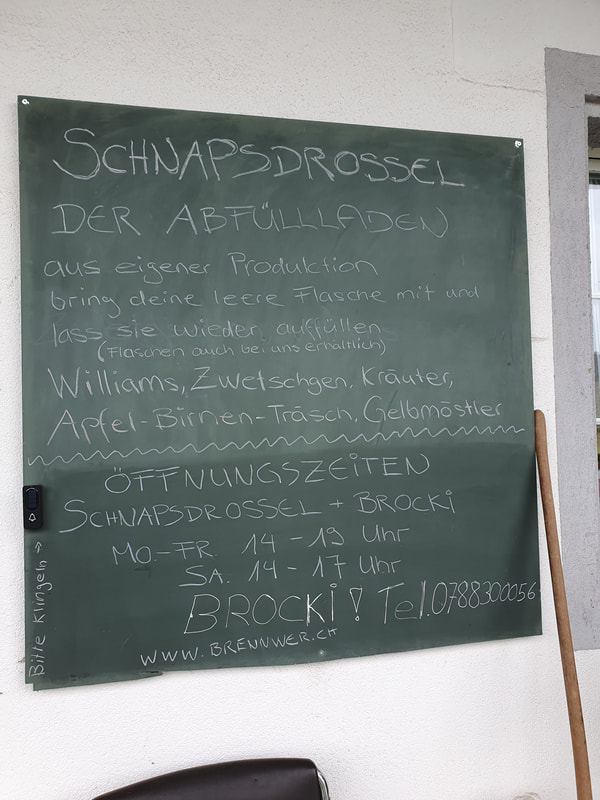 SCHNAPSDROSSEL
DER ABFÜLLLADEN
aus eigener Produktion
bring deine leere Flasche mit und
lass sie wieder auffüllen
(Flaschen auch bei uns erhältlich)
Williams, Zwetschgen, Kräuter,
Apfel-Birnen-Träsch, Gelbmöstler
ÖFFNUNGSZEITEN
SCHNAPSDROSSEL + BROCKI
MO.-FR. 14-19 Uhr
SA. 14-17 Uhr
BROCKI! Tel. 0788300056
WWW.BRENNWER.CH
Bitte klingeln →